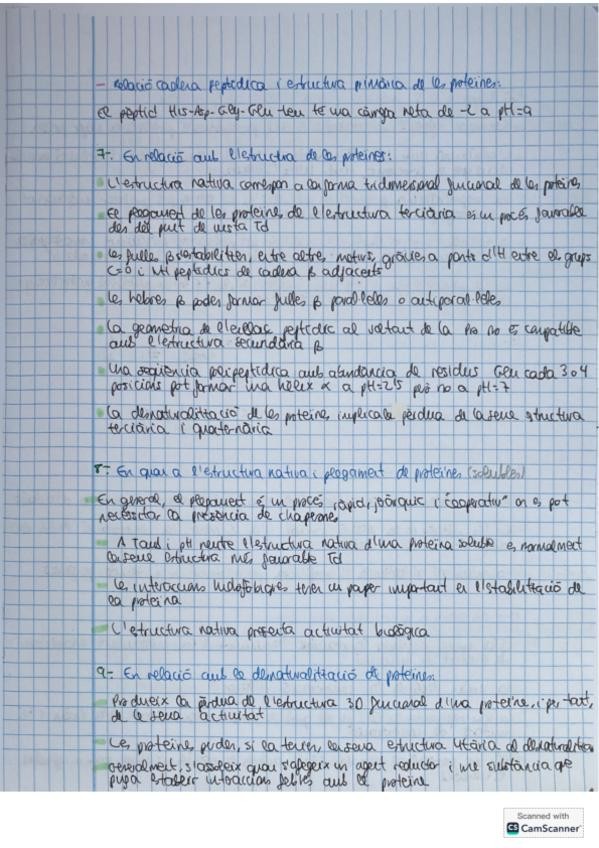 - Relació cadena peptídica i estructura primària de les proteïnes:
El pèptid His-Asp-Gly-Glu-Leu té una càrrega neta de -2 a pH=9
7- En relació amb l'estructura de les proteïnes:
L'estructura nativa correspon a la forma tridimensional funcional de les proteïnes
El plegament de les proteïnes de l'estructura terciària és un procés favorable
des del punt de vista Td
Les fulles β s'estabilitzen, entre altres motius, gràcies a ponts d'H entre els grups
C=O i NH peptídics de cadena β adjacents
Les hebres β poden formar fulles β paral·leles o antiparal·leles
La geometria de l'enllaç peptídic al voltant de la Pro no és compatible
amb l'estructura secundària β
Una seqüència polipeptídica amb abundància de residus Glu cada 3 o 4
posicions pot formar una hèlix α a pH=2'5 però no a pH=7
La desnaturalització de les proteïnes implica la pèrdua de la seva structura
terciària i quaternària
8- En quan a l'estructura nativa i plegament de proteïnes (solubles)
En general, el plegament és un procés ràpid, jeràrquic i "cooperatiu" on es pot
necessitar la presència de chaperones
A Taus i pH neutre l'estructura nativa d'una proteïna soluble es normalment
la seva estructura més favorable Td
Les interaccions hidrofòbiques tenen un paper important en l'estabilització de
la proteïna
L'estructura nativa presenta activitat biològica
9- En relació amb la desnaturalització de proteïnes:
Produeix la pèrdua de l'estructura 3D funcional d'una proteïna, i per tant,
de la seva activitat
Les proteïnes perden, si la tenen, la seva estructura 4tària al desnaturalitzar
Generalment, s'assoleix quan s'afegeix un agent reductor i una substància que
pugui establir interaccions febles amb la proteïna
Scanned with
CS CamScanner